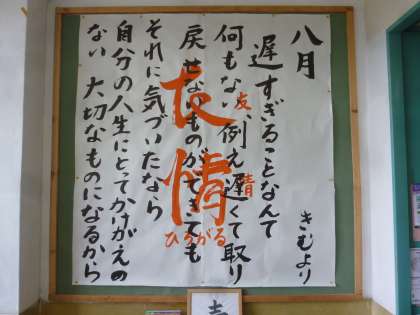 八月
遅すぎることなんて
何もない、例え遅くて取り
戻せないものができても
それに気づいたなら
自分の人生にとってかけがえの
ない 大切なものになるから
きむより
友情
友情
ひろがる